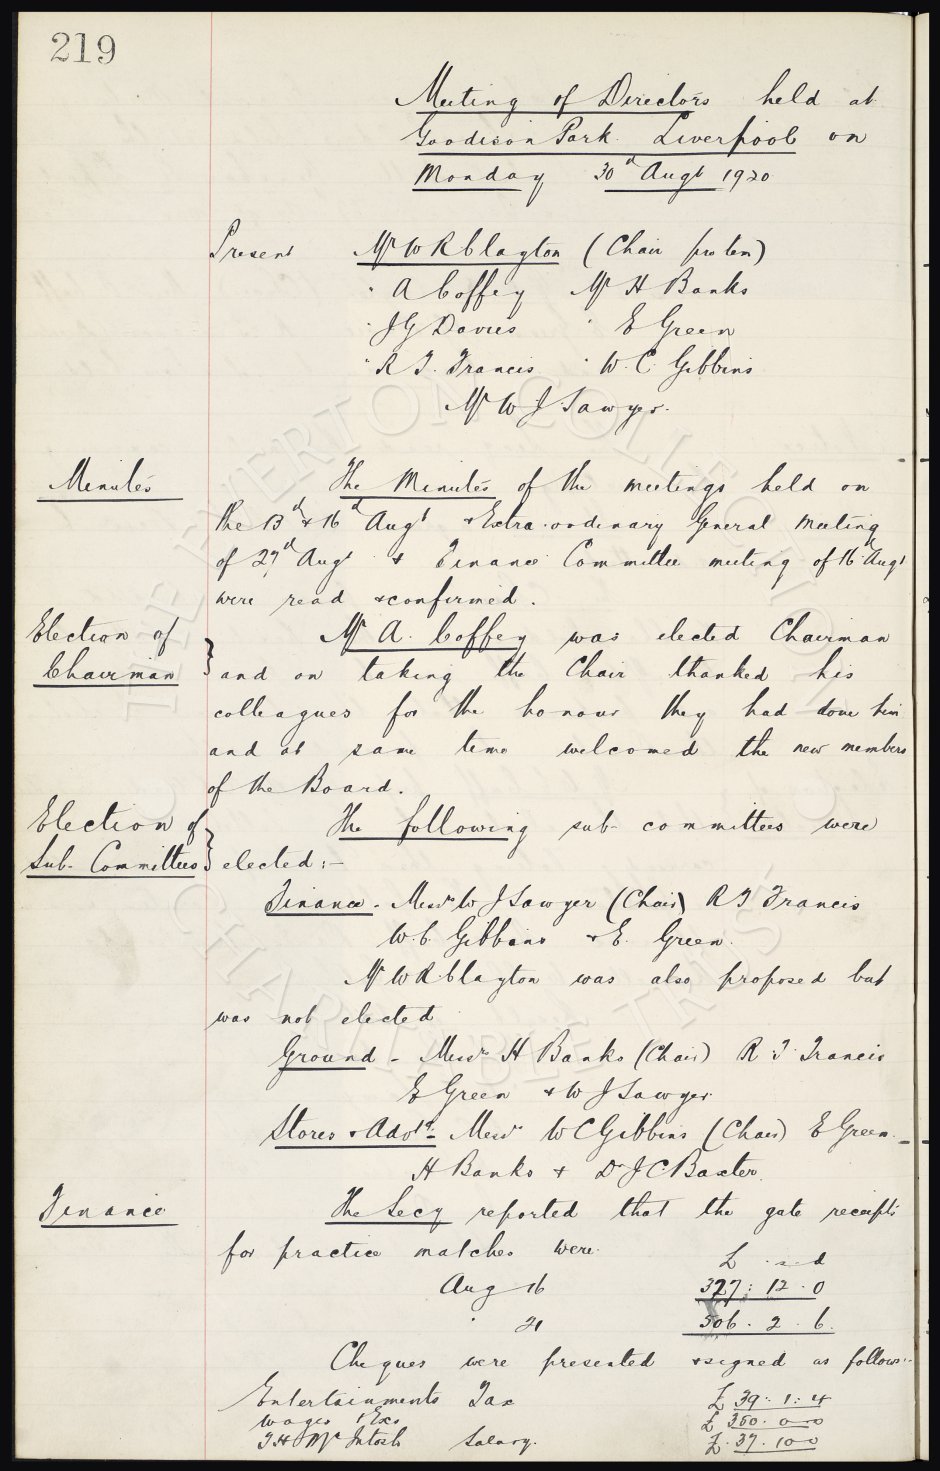 219
Meeting of Directors held at
Goodison Park Liverpool on
Monday 30th Augt 1920
Present Mr W R Clayton (Chair pro tem)
" A Coffey Mr H Banks
" J G Davies " E Green
" R T Francis " W. C. Gibbins
Mr W J Sawyer.
Minutes The Minutes of the meetings held on
the 13th & 16th Augt & Extra-ordinary General Meeting
of 27th Augt & Finance Committee meeting of 16th Augt
were read & confirmed.
Election of Mr A. Coffey was elected Chairman
Chairman } and on taking the Chair thanked his
colleagues for the honour they had done him
and at same time welcomed the new members
of the Board.
Election of The following sub-committees were
Sub-Committees } elected:-
Finance - Messrs W J Sawyer (Chair) R T Francis
W. C. Gibbins & E. Green.
Mr W R Clayton was also proposed but
was not elected
Ground - Messrs H Banks (Chair) R. T. Francis
E Green & W J Sawyer.
Stores & Advts - Messrs W C Gibbins (Chair) E Green.
H Banks & Dr J C Baxter.
Finance The Secy reported that the gate receipts
for practice matches were.
£ s d
Aug 16 327: 12. 0
" 21 506. 2. 6.
Cheques were presented & signed as follows:-
Entertainments Tax £ 39: 1: 4
Wages & Exs £ 350. 0-0
T H McIntosh Salary. £. 37. 10 0
THE EVERTON COLLECTION
CHARITABLE TRUST